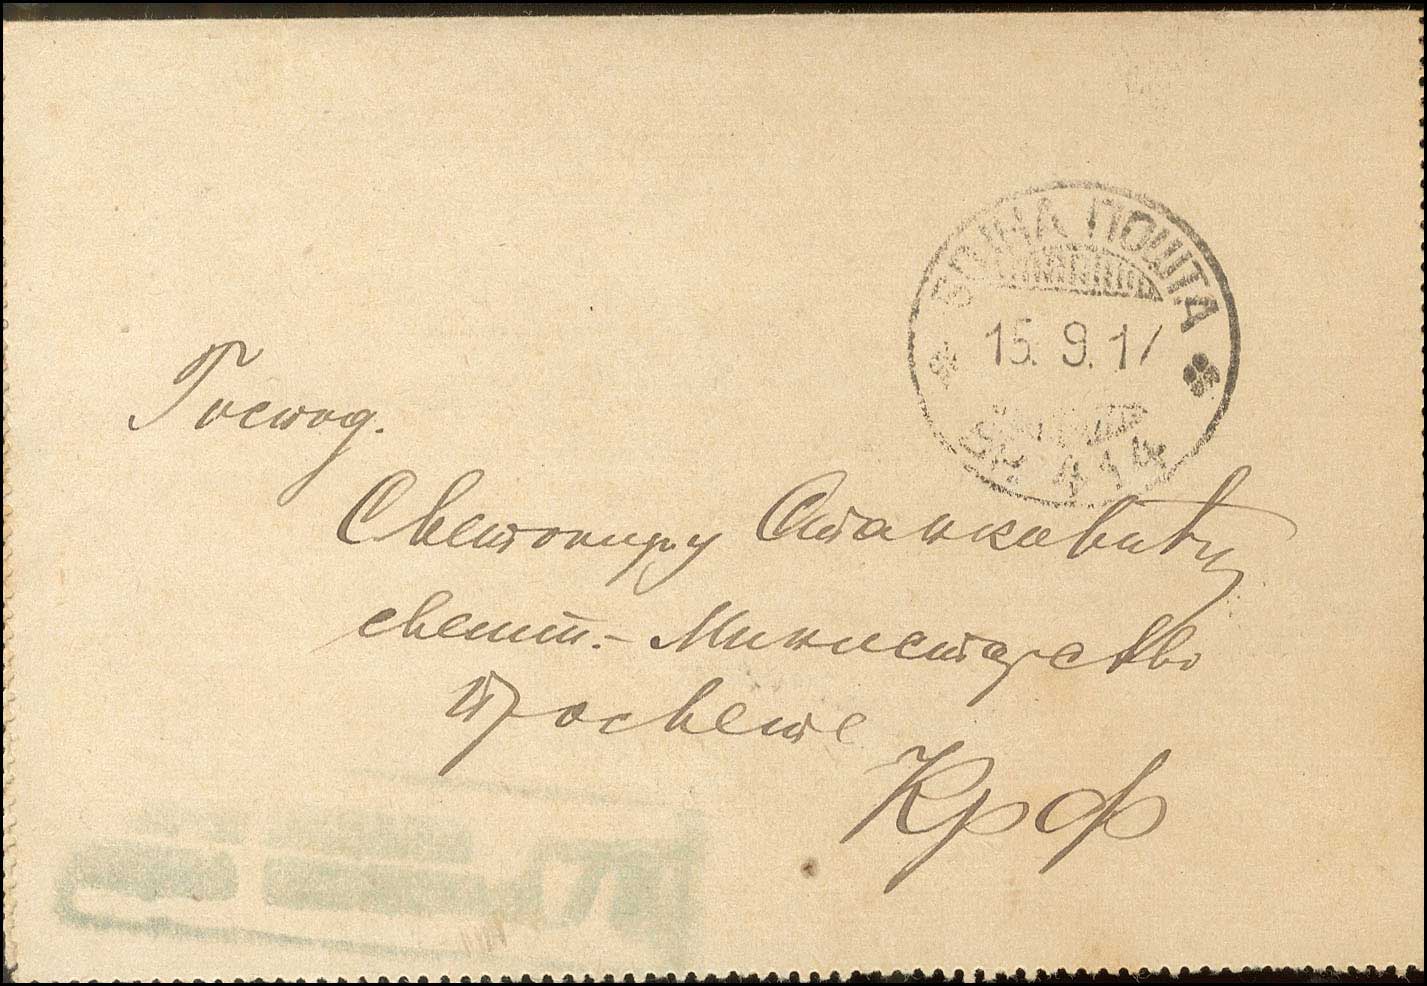 ВОЈНА ПОШТА
15. 9. 17
БР. 414
Господ.
Светомиру Станковићу
свешт. - Министарство
Просвете
Крф